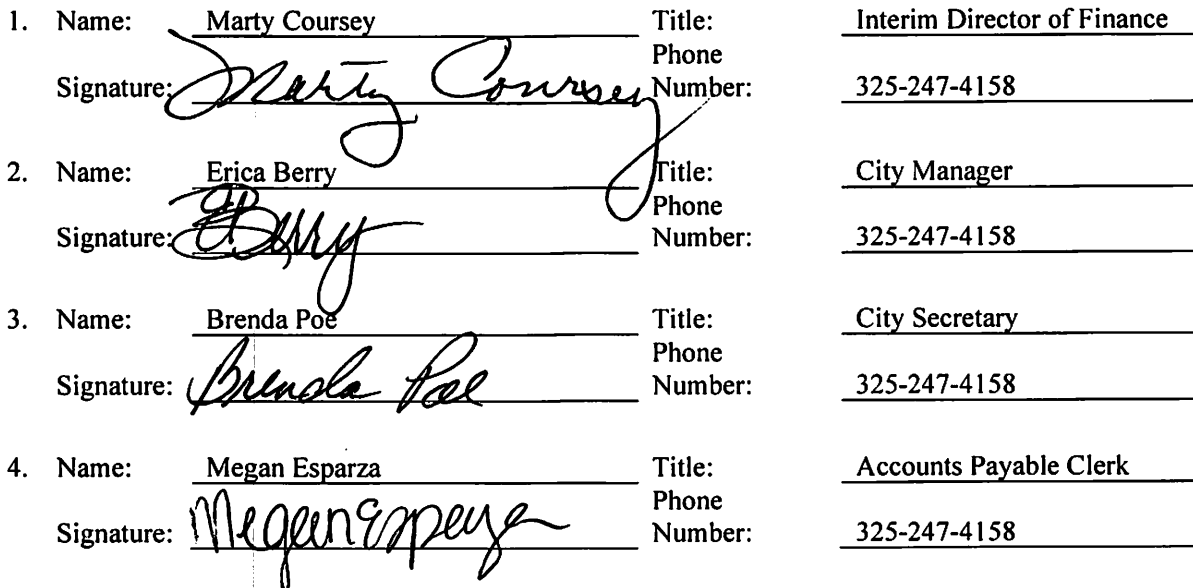 1. Name: Marty Coursey Title: Interim Director of Finance
Phone
Signature: Marty Coursey Number: 325-247-4158
2. Name: Erica Berry Title: City Manager
Phone
Signature: EBerry Number: 325-247-4158
3. Name: Brenda Poe Title: City Secretary
Phone
Signature: Brenda Poe Number: 325-247-4158
4. Name: Megan Esparza Title: Accounts Payable Clerk
Phone
Signature: Megan Esparza Number: 325-247-4158